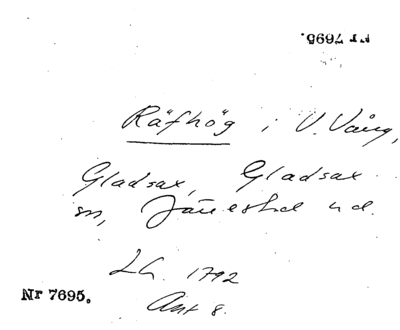 Nr 7695.
Räfhög i V. Vång,
Gladsax, Gladsax
sn, Järrestad hd.
LG. 1792
Akt 8.
Nr 7695.